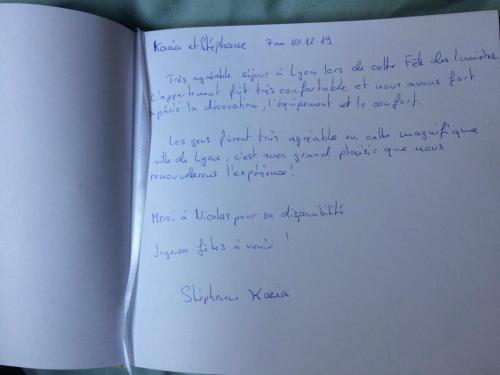 Karia et Stéphane 7 au 10.12.19
Très agréable séjour à Lyon lors de cette Fête des Lumières.
L'appartement fût très confortable et nous avons fort
apécié la décoration, l'équipement et le confort.
Les gens fûrent très agréables en cette magnifique
ville de Lyon, c'est avec grand plaisir que nous
renouvellerons l'expérience !
Merci à Nicolas pour sa disponibilité
Joyeuses fêtes à venir !
Stéphane Karia